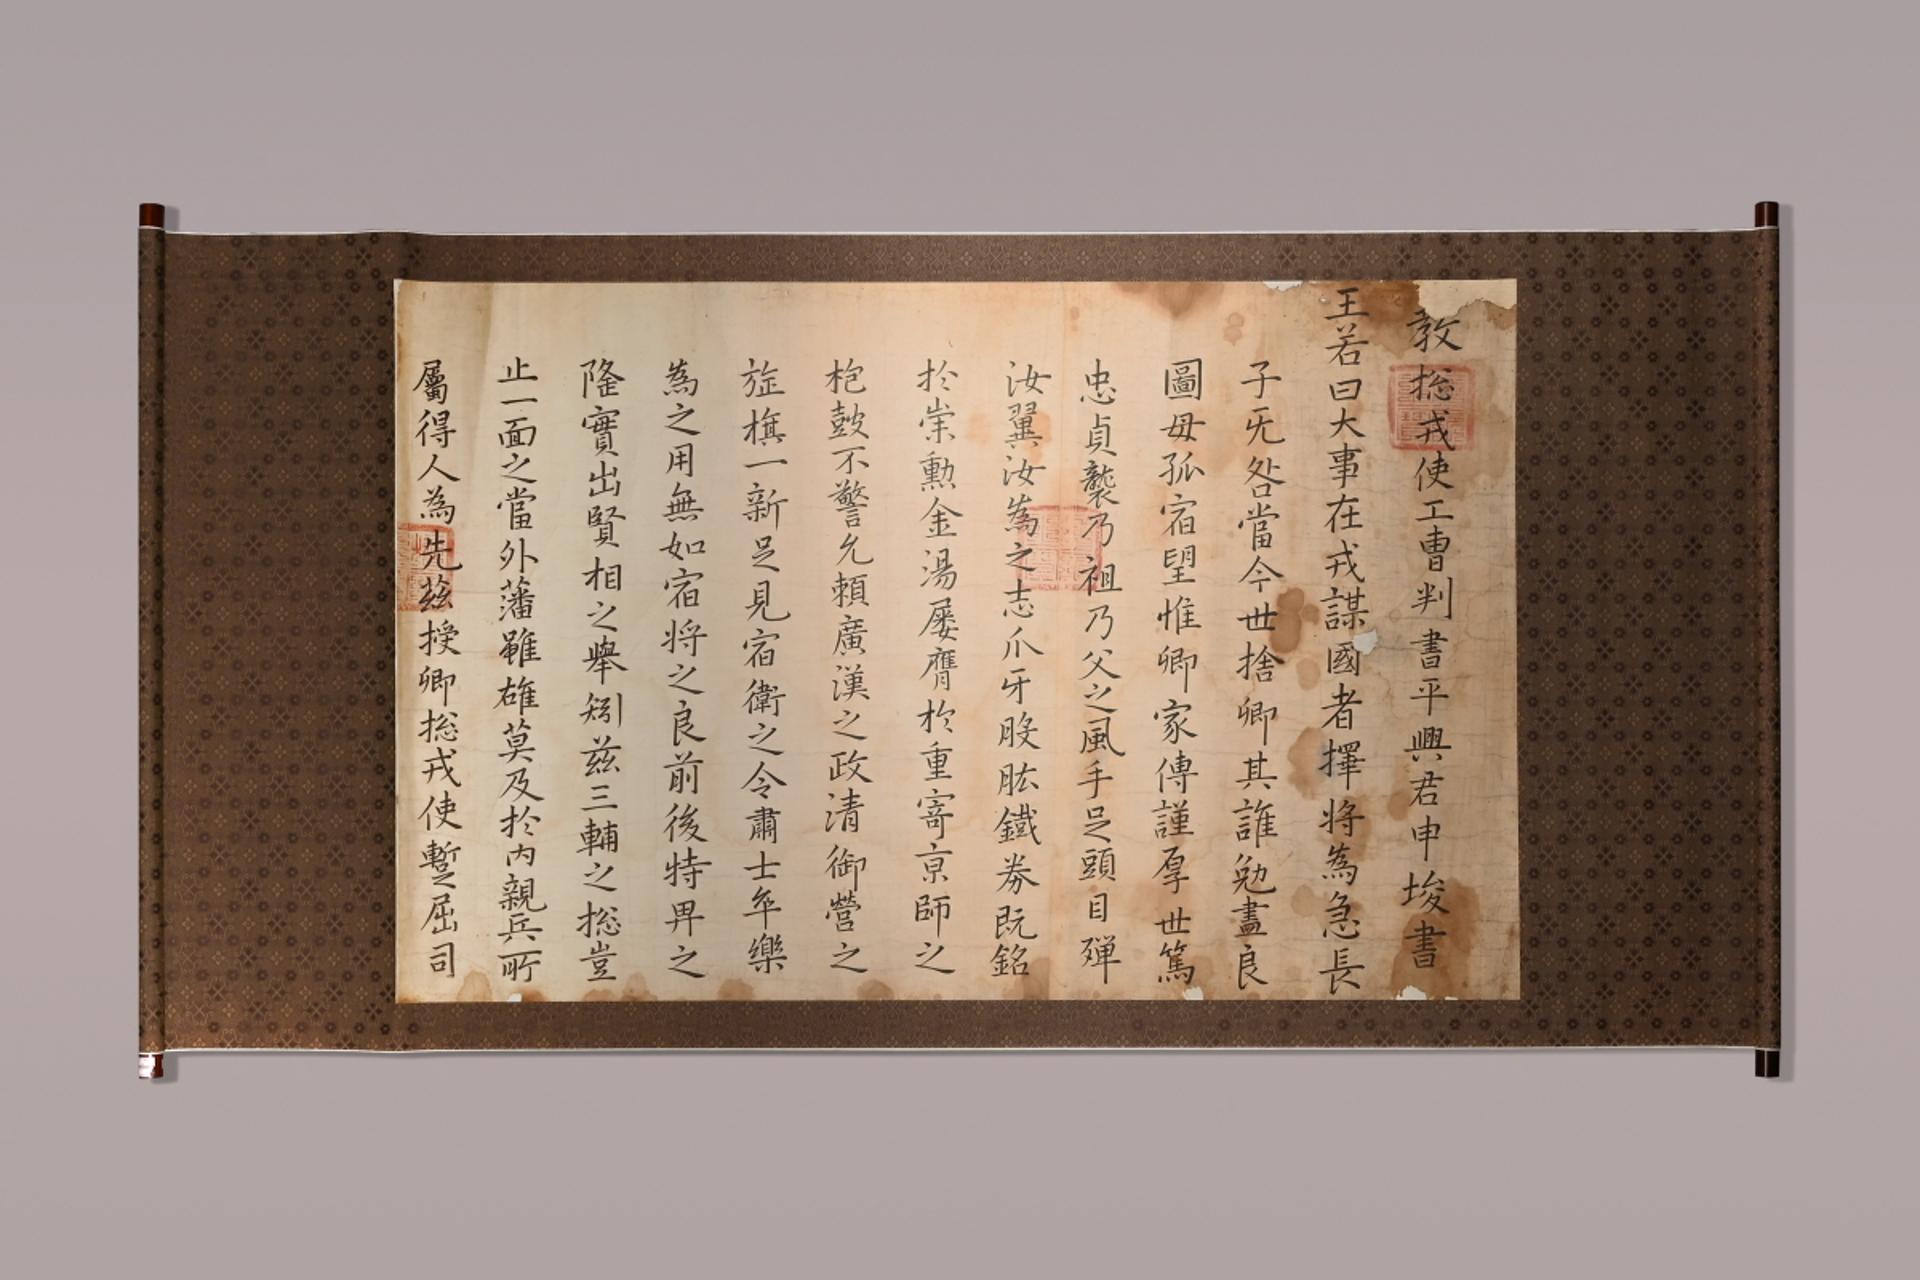 敎 捴戎使工曹判書平興君申埈書
王若曰大事在戎謀國者擇将為急長
子旡咎當今世捨卿其誰勉盡良
圖毋孤宿望惟卿家傳謹厚世篤
忠貞襲乃祖乃父之風手足頭目殫
汝翼汝為之志爪牙股肱鐵券既銘
扵崇勳金湯屡膺扵重寄京師之
枹鼓不警允頼廣漢之政清御營之
旌旗一新足見宿衛之令肅士卒樂
為之用無如宿将之良前後特畀之
隆實出賢相之舉矧兹三輔之捴豈
止一面之當外藩雖雄莫及扵内親兵所
屬得人為先兹授卿捴戎使暫屈司